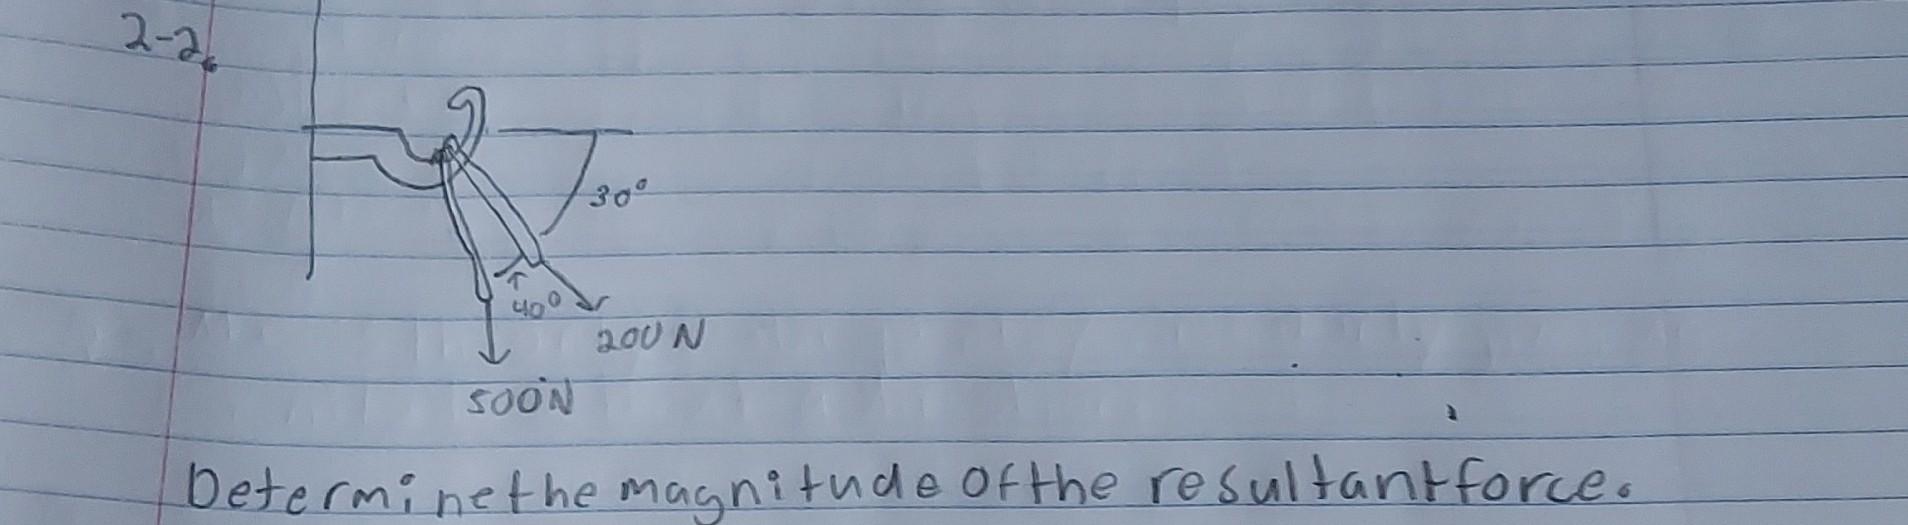 2-2.
30°
40°
200 N
500N
Determine the magnitude of the resultant force.